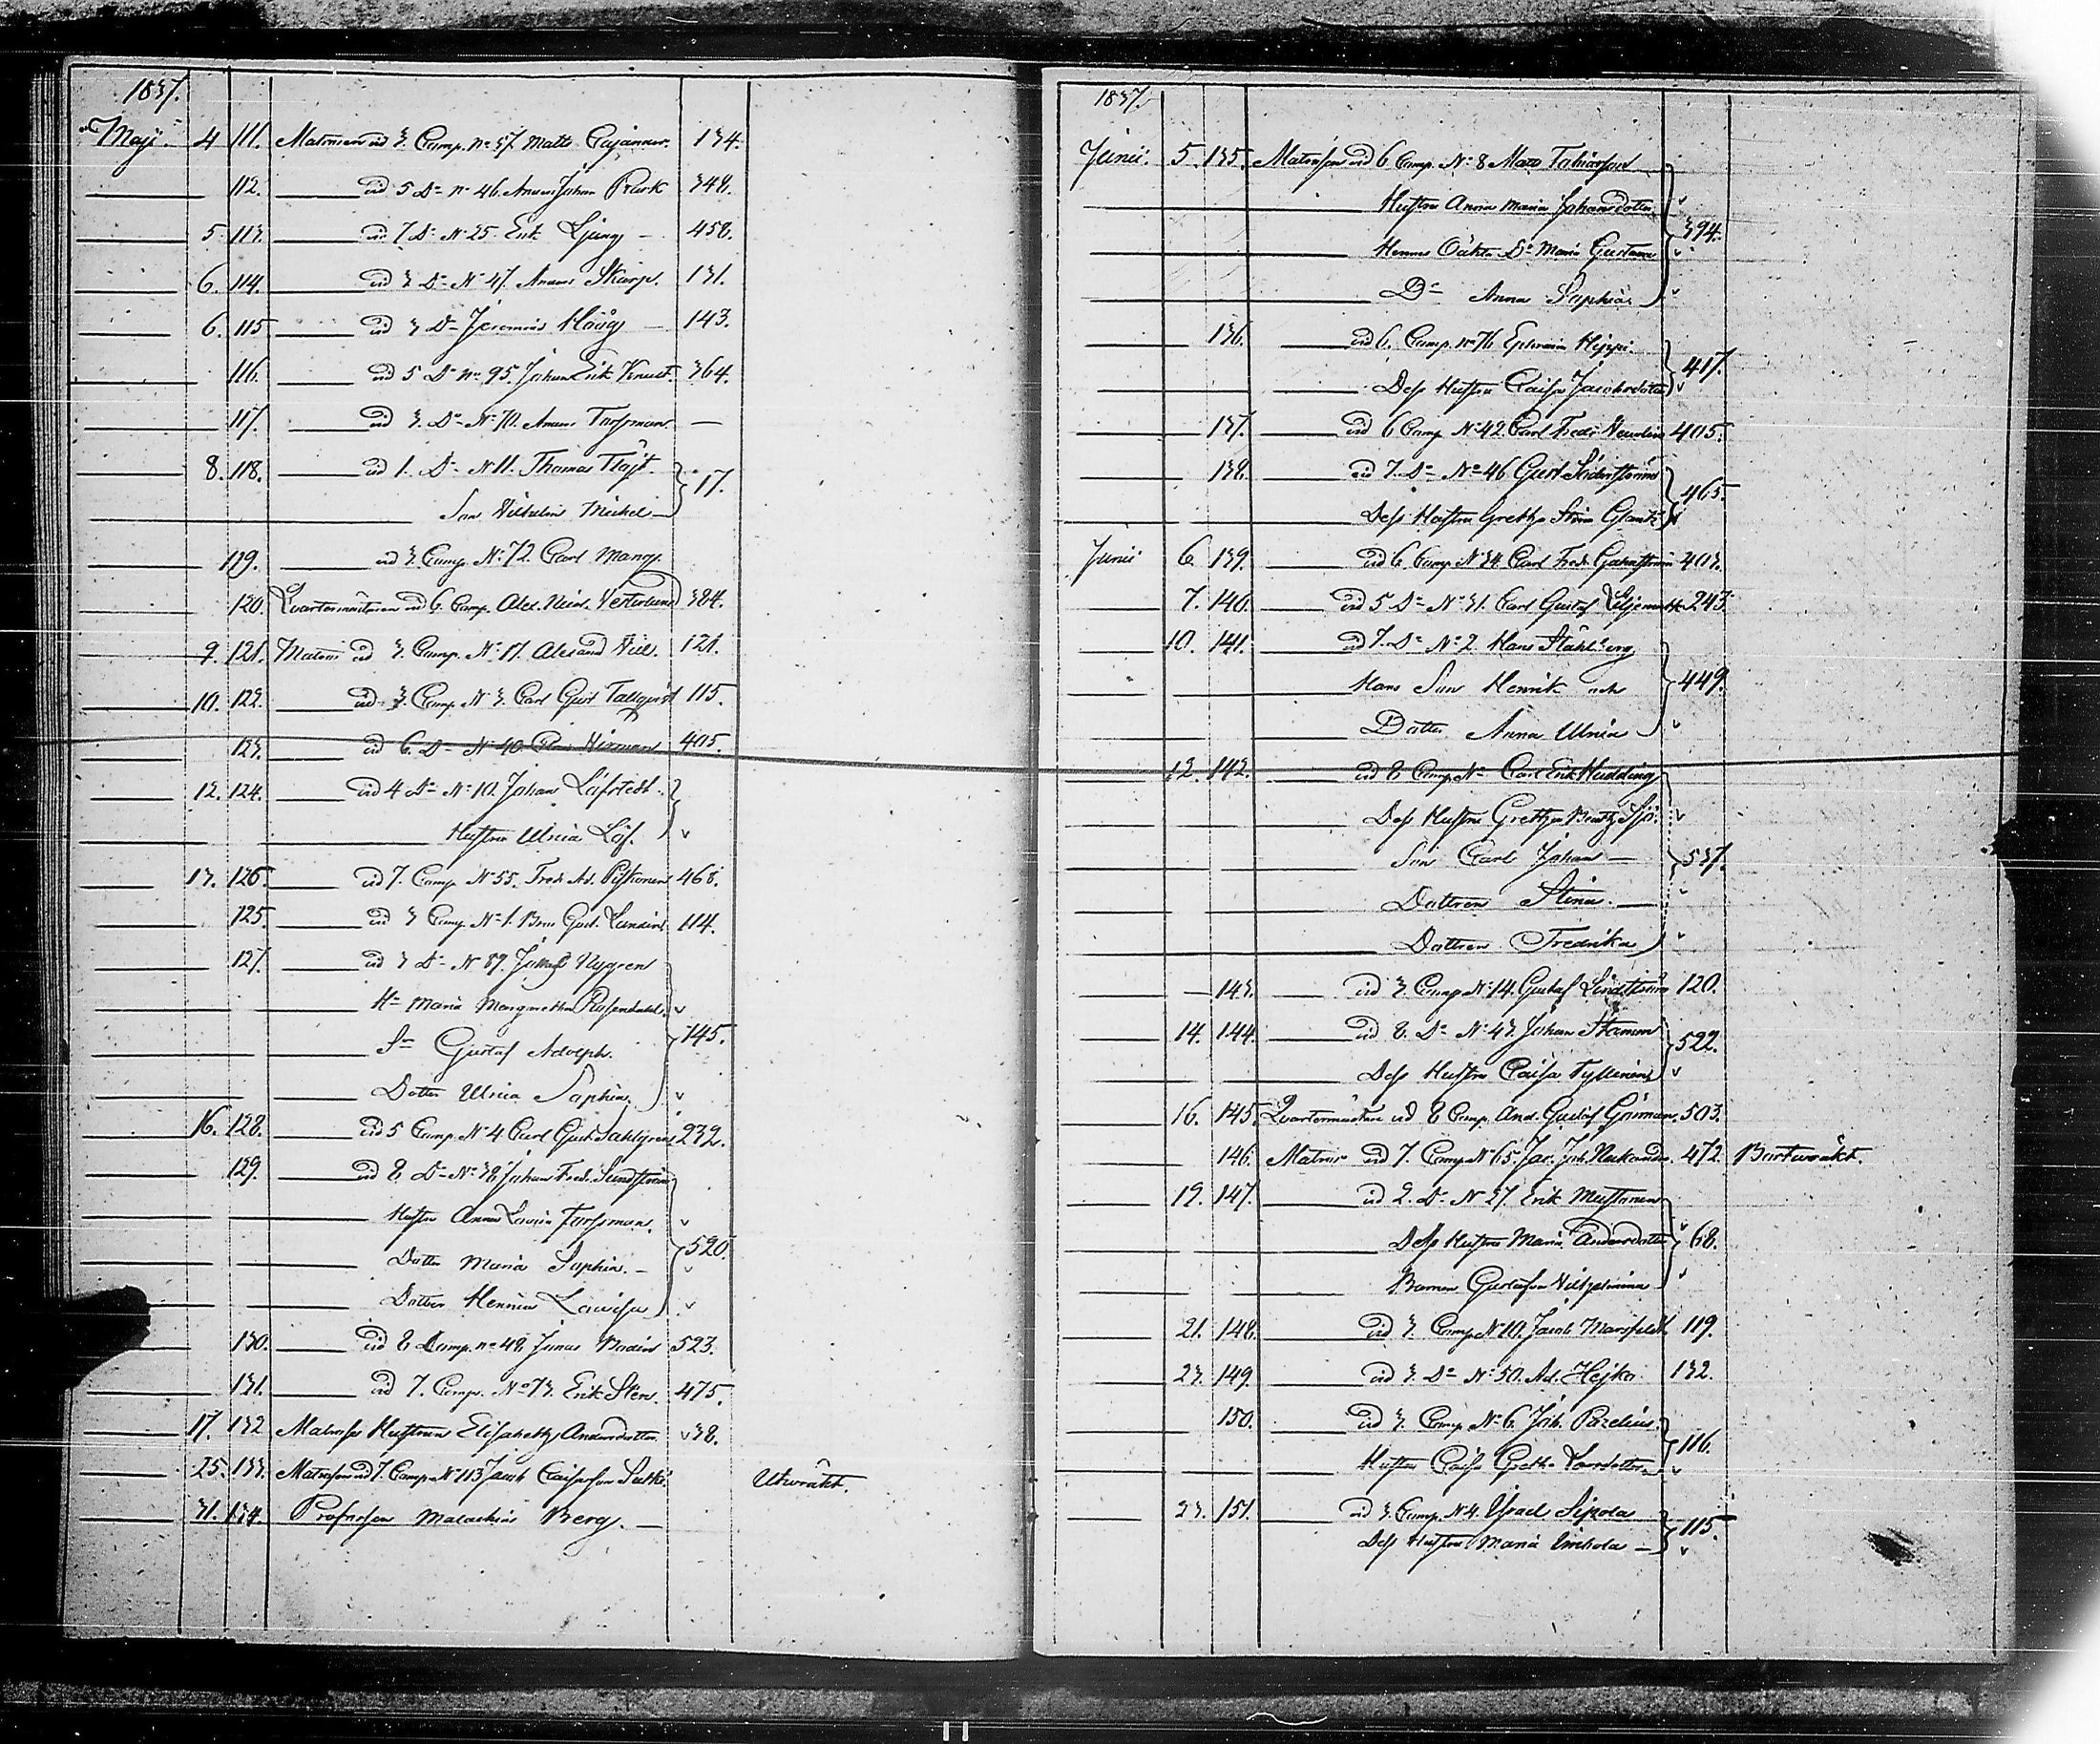 1837.
Maji. 4 111. Matrosen vid 3. Comp. No 57 Matts Cajanner. 134.
112. vid 5 Do No 46. Anders Johan Park 348.
5. 113. vid 7 Do No 25. Erik Ljung 458.
6. 114. vid 3 Do No 47. Anders Skarp. 131.
6. 115 vid 3 Do Jeremias Höög 143.
116. vid 5 Do No 95. Johan Erik Knut. 364.
117. vid 3. Do No 70. Anders Forsman. —
8. 118. vid 1. Do No 11. Thomas Flöjt.
Son Vilhelm Mickel 17.
119. vid 3. Comp. No 72. Carl Mang.
120. Quartermästaren vid 6. Comp. Alex. Vesterlund 384.
9. 121. Matros vid 3. Comp. No 17. Alexand. Vill. 121.
10. 122. vid 3. Comp. No 3. Carl Gust Tallqvist 115.
123. vid 6. Do No 40. 405.
12. 124. vid 4 Do No 10. Johan Löfstedt.
Hustru Ulrica Löf.
13. 126. vid 7. Comp No 55. Fred. Ad. Piskonen 468.
125. vid 3 Comp No 1. Gust. Lundin 114.
127. vid 3 Do No 89. Nygren
Hu Maria Margaretha Rosendahl.
Sn Gustaf Adolph. 145.
Dotter Ulrica Sophia.
16. 128. vid 5 Comp. No 4 Carl Gust. Sahlgren 232.
129. vid 8 Do No 38 Johan Fredr. Sundström
Hustru Anna Lovisa Forsman.
Dotter Maria Sophia. 520.
Dotter Henrica Lowisa
130. vid 8 Comp. no 48 Jonas Bodin 523.
131. vid 7. Comp. No 73. Erik Sten. 475.
17. 132 Matrose Hustrun Elisabeth Andersdotter. 38.
25. 133. Matrosen vid 7. Comp. No 113 Jacob Caisasson Sutki. Utwräkt.
31. 134. Professen Malachias Berg.
1837.
Junii. 5. 135. Matrosen vid 6 Comp. No 8 Mats
Hustru Anna Maria Johansdotter
Hennes Oäkta Dr Maria Gustava 394.
Do Anna Sophia
136. vid 6. Comp. No 76 Ephraim Heppi.
Dess Hustru Caisa Jacobsdotter 417.
137. vid 6 Comp No 42 Carl Fredr. 405.
138. vid 7. Do No 46 Gust Söderström
Dess Hustru Greta Stina Glantz 465.
Junii 6. 139. vid 6. Comp No 34. Carl Fredr. 403.
7. 140. vid 5 Do No 31. Carl Gustaf 243.
10. 141. vid 7. Do No 2. Hans Ståhlberg
Hans Son Henrik och 449.
Dotter Anna Ulrica
12. 142. vid 8 Comp No Carl Erik Hudding
Dess Hustru Greta Sjö.
Son Carl Johan 537.
Dottren Stina.
Dottren Fredrika
143. vid 3. Comp No 14. Gustaf Lindström 120.
14. 144. vid 8. Do No 43 Johan Stamm
Dess Hustru Caisa 522.
16. 145. Quartermästare vid 8 Comp. And. Gustaf Grönman 503.
146. Matros vid 7. Comp No 65. Jac. Joh. 472. Bortwräkt.
19. 147. vid 2. Do No 37. Erik Mustonen
Dess Hustru Maria Andersdotter 68.
Barnen Gustafva Vilhelmina
21. 148. vid 3. Comp No 10. Jacob Marsfeldt 119.
23. 149. vid 3. Do No 50. Ad. Hejko 132.
150. vid 3. Comp No 6. Joh. Pazelius.
Hustru Caisa Greta Larsdotter. 116.
23. 151. vid 3. Comp. No 4. Israel Sipola
Dess Hustru Maria 115.